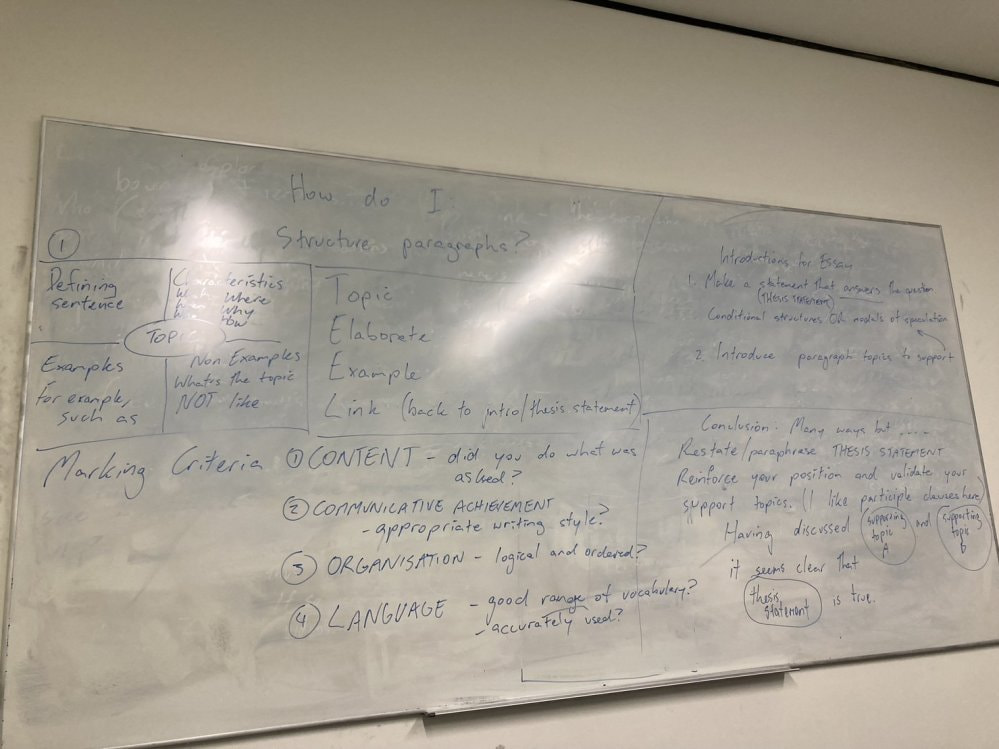 How do I:
Structure paragraphs?
1
Defining
sentence
Characteristics
Where
Why
How
TOPIC
Examples
For example,
such as
Non Examples
What's the topic
NOT like
Topic
Elaborate
Example
Link (back to intro/thesis statement)
Introductions for Essay
1. Make a statement that answers the question
(THESIS STATEMENT)
Conditional structures OR modals of speculation
2. Introduce paragraph topics to support
Marking Criteria
1 CONTENT - did you do what was
asked?
2 COMMUNICATIVE ACHIEVEMENT
- appropriate writing style?
3 ORGANISATION - logical and ordered?
4 LANGUAGE - good range of vocabulary?
- accurately used?
Conclusion: Many ways but .....
Restate/paraphrase THESIS STATEMENT
Reinforce your position and validate your
support topics. (I like participle clauses here)
Having discussed supporting topic A and supporting topic B
it seems clear that
thesis statement is true.